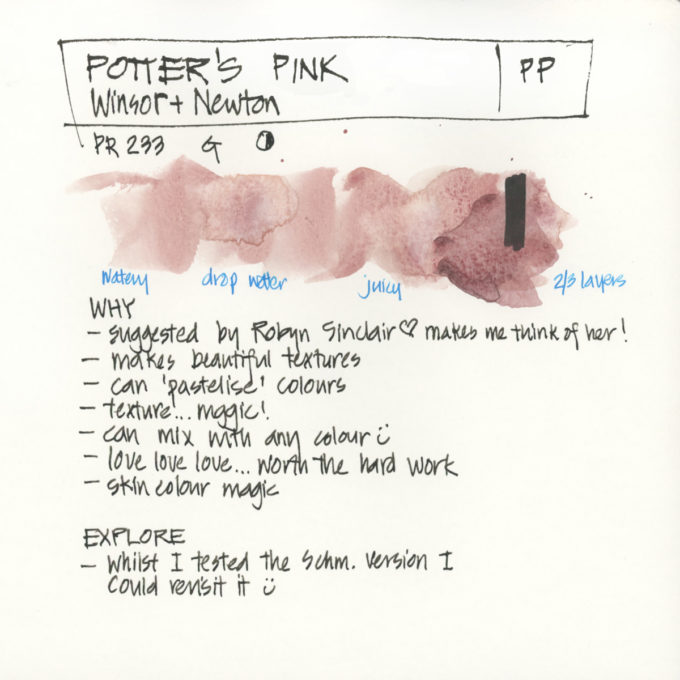 POTTER'S PINK PP
Winsor + Newton
PR 233 G
watery drop water juicy 2/3 layers
WHY
- suggested by Robyn Sinclair♡ makes me think of her!
- makes beautiful textures
- can 'pastelise' colours
- texture... magic!
- can mix with any colour :)
- love love love... worth the hard work
- skin colour magic
EXPLORE
- Whilst I tested the Schm. version I
could revisit it :)